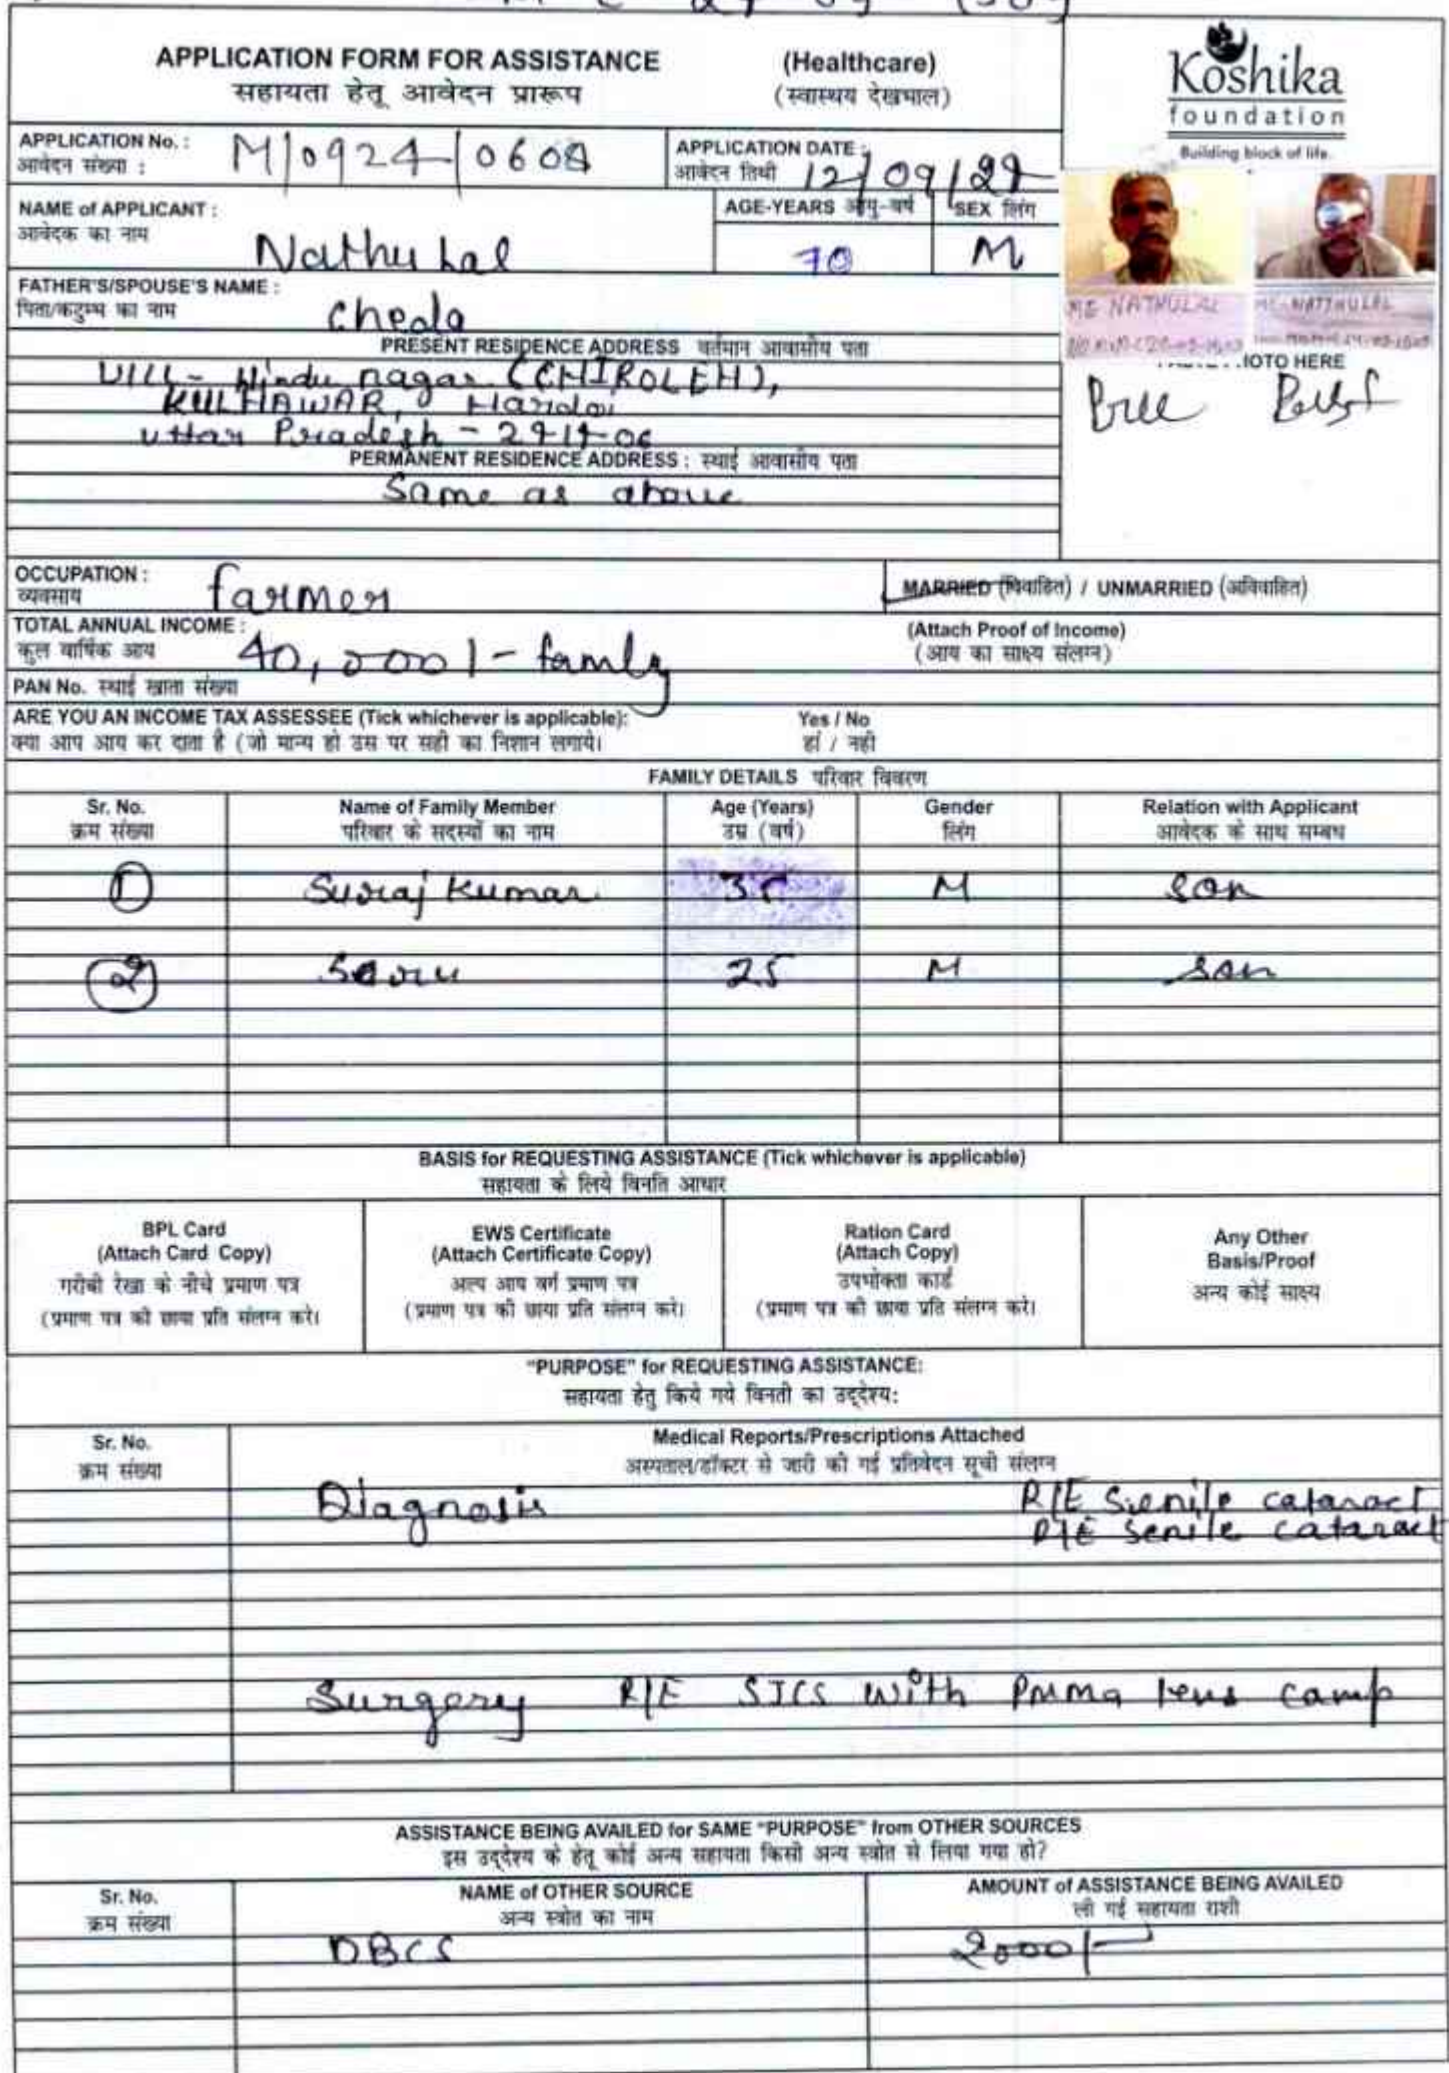 APPLICATION FORM FOR ASSISTANCE (Healthcare)
सहायता हेतू आवेदन प्रारूप (स्वास्थय देखभाल)
Koshika
foundation
Building block of life.
APPLICATION No. : M/0924/0608
आवेदन संख्या :
APPLICATION DATE : 12/09/24
आवेदन तिथी
NAME of APPLICANT : Nathu Lal
आवेदक का नाम
AGE-YEARS आयु-वर्ष 70
SEX लिंग M
FATHER'S/SPOUSE'S NAME : Cheda
पिता/कटुम्भ का नाम
MR NATHULAL
MR NATTHULAL
PRESENT RESIDENCE ADDRESS वर्तमान आवासीय पता
OTO HERE
Vill- Hindu nagar (CHIROLEH),
KULHAWAR, Hardoi
Uttar Pradesh -
PERMANENT RESIDENCE ADDRESS : स्थाई आवासीय पता
Same as above
OCCUPATION : farmer
व्यवसाय
MARRIED (विवाहित) / UNMARRIED (अविवाहित)
TOTAL ANNUAL INCOME : 40,000/- family
कुल वार्षिक आय
(Attach Proof of Income)
(आय का साक्ष्य संलग्न)
PAN No. स्थाई खाता संख्या
ARE YOU AN INCOME TAX ASSESSEE (Tick whichever is applicable): Yes / No
क्या आप आय कर दाता है (जो मान्य हो उस पर सही का निशान लगाये। हां / नही
FAMILY DETAILS परिवार विवरण
Sr. No. Name of Family Member Age (Years) Gender Relation with Applicant
क्रम संख्या परिवार के सदस्यों का नाम उम्र (वर्ष) लिंग आवेदक के साथ सम्बध
1 Suraj Kumar M son
2 25 M son
BASIS for REQUESTING ASSISTANCE (Tick whichever is applicable)
सहायता के लिये विनति आधार
BPL Card
(Attach Card Copy)
गरीबी रेखा के नीचे प्रमाण पत्र
(प्रमाण पत्र की छाया प्रति संलग्न करे।
EWS Certificate
(Attach Certificate Copy)
अल्प आय वर्ग प्रमाण पत्र
(प्रमाण पत्र की छाया प्रति संलग्न करे।
Ration Card
(Attach Copy)
उपभोक्ता कार्ड
(प्रमाण पत्र की छाया प्रति संलग्न करे।
Any Other
Basis/Proof
अन्य कोई साक्ष्य
"PURPOSE" for REQUESTING ASSISTANCE:
सहायता हेतु किये गये विनती का उद्देश्य:
Sr. No. Medical Reports/Prescriptions Attached
क्रम संख्या अस्पताल/डॉक्टर से जारी की गई प्रतिवेदन सूची संलग्न
Diagnosis R/E Senile cataract
Senile cataract
Surgery R/E SICS with PMMA lens camp
ASSISTANCE BEING AVAILED for SAME "PURPOSE" from OTHER SOURCES
इस उद्देश्य के हेतू कोई अन्य सहायता किसी अन्य स्त्रोत से लिया गया हो?
Sr. No. NAME of OTHER SOURCE AMOUNT of ASSISTANCE BEING AVAILED
क्रम संख्या अन्य स्त्रोत का नाम ली गई सहायता राशी
DBCS 2000/-